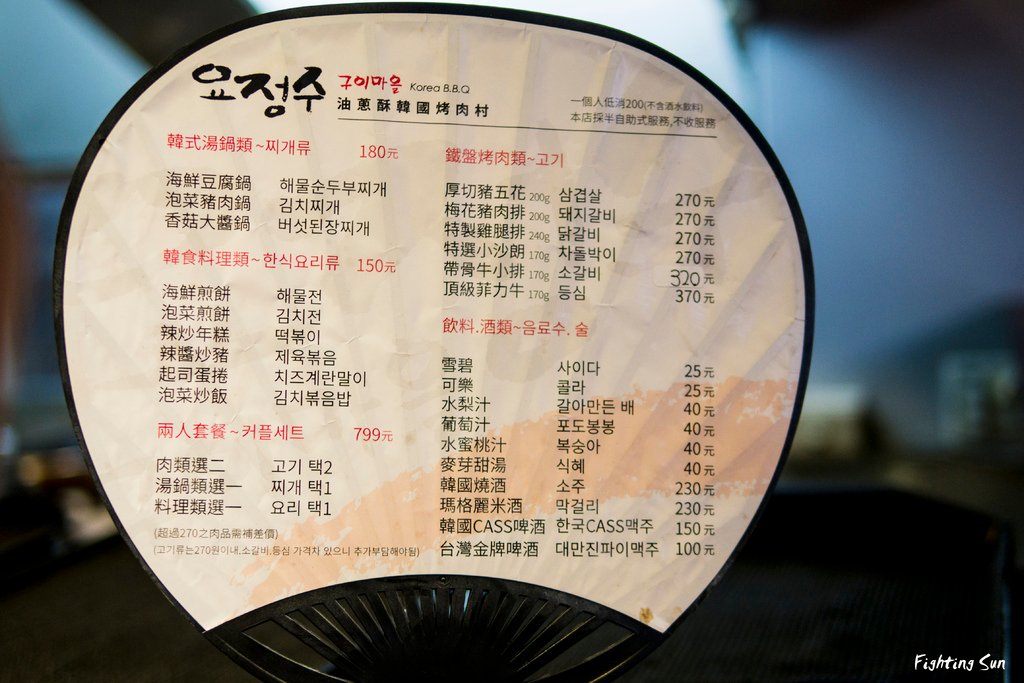 요정수 구이마을 Korea B.B.Q
油蔥酥韓國烤肉村
一個人低消200(不含酒水飲料)
本店採半自助式服務,不收服務
韓式湯鍋類~찌개류 180元
海鮮豆腐鍋 해물순두부찌개
泡菜豬肉鍋 김치찌개
香菇大醬鍋 버섯된장찌개
韓食料理類~한식요리류 150元
海鮮煎餅 해물전
泡菜煎餅 김치전
辣炒年糕 떡볶이
辣醬炒豬 제육볶음
起司蛋捲 치즈계란말이
泡菜炒飯 김치볶음밥
兩人套餐~커플세트 799元
肉類選二 고기 택2
湯鍋類選一 찌개 택1
料理類選一 요리 택1
(超過270之肉品需補差價)
(고기류는270원이내.소갈비.등심 가격차 있으니 추가부담해야됨)
鐵盤烤肉類~고기
厚切豬五花 200g 삼겹살 270元
梅花豬肉排 200g 돼지갈비 270元
特製雞腿排 240g 닭갈비 270元
特選小沙朗 170g 차돌박이 270元
帶骨牛小排 170g 소갈비 320元
頂級菲力牛 170g 등심 370元
飲料.酒類~음료수. 술
雪碧 사이다 25元
可樂 콜라 25元
水梨汁 갈아만든 배 40元
葡萄汁 포도봉봉 40元
水蜜桃汁 복숭아 40元
麥芽甜湯 식혜 40元
韓國燒酒 소주 230元
瑪格麗米酒 막걸리 230元
韓國CASS啤酒 한국CASS맥주 150元
台灣金牌啤酒 대만진파이맥주 100元
Fighting Sun